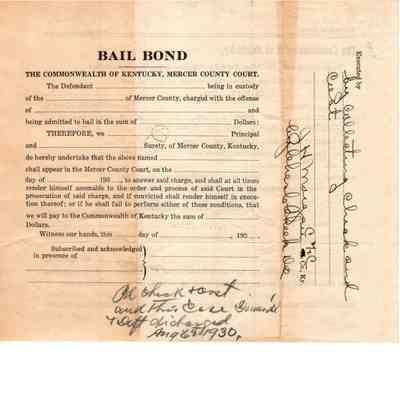 BAIL BOND
THE COMMONWEALTH OF KENTUCKY, MERCER COUNTY COURT.
The Defendant being in custody
of the of Mercer County, charged with the offense
of and
being admitted to bail in the sum of Dollars:
THEREFORE, we Principal
and Surety, of Mercer County, Kentucky,
do hereby undertake that the above named
shall appear in the Mercer County Court, on the
day of 193 , to answer said charge, and shall at all times
render himself amenable to the order and process of said Court in the
prosecution of said charge, and if convicted shall render himself in execu-
tion thereof; or if he shall fail to perform either of these conditions, that
we will pay to the Commonwealth of Kentucky the sum of
Dollars.
Witness our hands, this day of , 193
Subscribed and acknowledged
in presence of
check & cost
and this Case
& Deft discharged
Aug 1930,
Executed by
by collecting check and
Cost